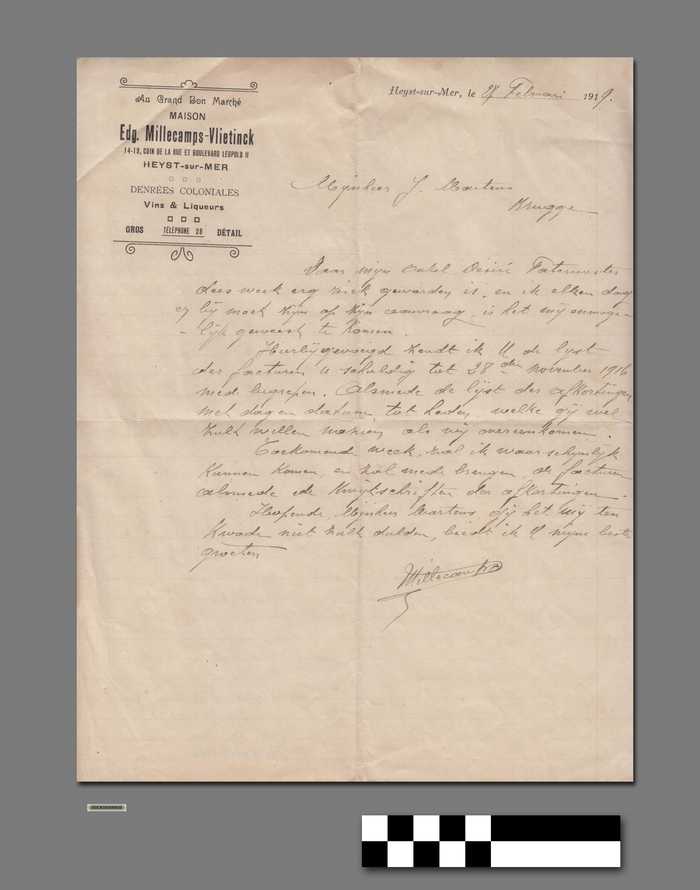 Au Grand Bon Marché
MAISON
Edg. Millecamps-Vlietinck
14-19, COIN DE LA RUE ET BOULEVARD LEOPOLD II
HEYST-sur-MER
DENRÉES COLONIALES
Vins & Liqueurs
GROS TÉLÉPHONE 28 DÉTAIL
Heyst-sur-Mer, le 27 Februari 1919.
Mijnheer J. Martens
Brugge
Daar mijn onkel Désiré
dees week erg ziek geworden is, en ik elken dag
bij moet zijn op zijn aanvraag, is het mij onmoge-
lijk geweest te komen.
Hierbijgevoegd zendt ik U de lijst
der facturen U schuldig tot 28 November 1916
med begrepen. Alsmede de lijst der afkortingen
met dagen datum tot heden, welke gij wel
zult willen nazien als wij overeenkomen.
Toekomende week, zal ik waarschijnlijk
kunnen komen, en zal mede brengen, de facturen
alsmede de kwijtschriften der afkortingen.
Hopende, Mijnheer Martens gij het mij ten
kwade niet zult duiden, biedt ik U mijne beste
groeten
Millecamps